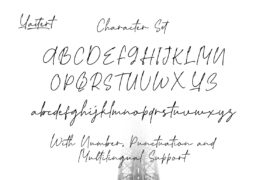 Character Set
ABCDEFGHIJKLMN
OPQRSTUVWXYZ
abcdefghijklmnopqrstuvwxyz
With Number, Punctuation and
Multilingual Support